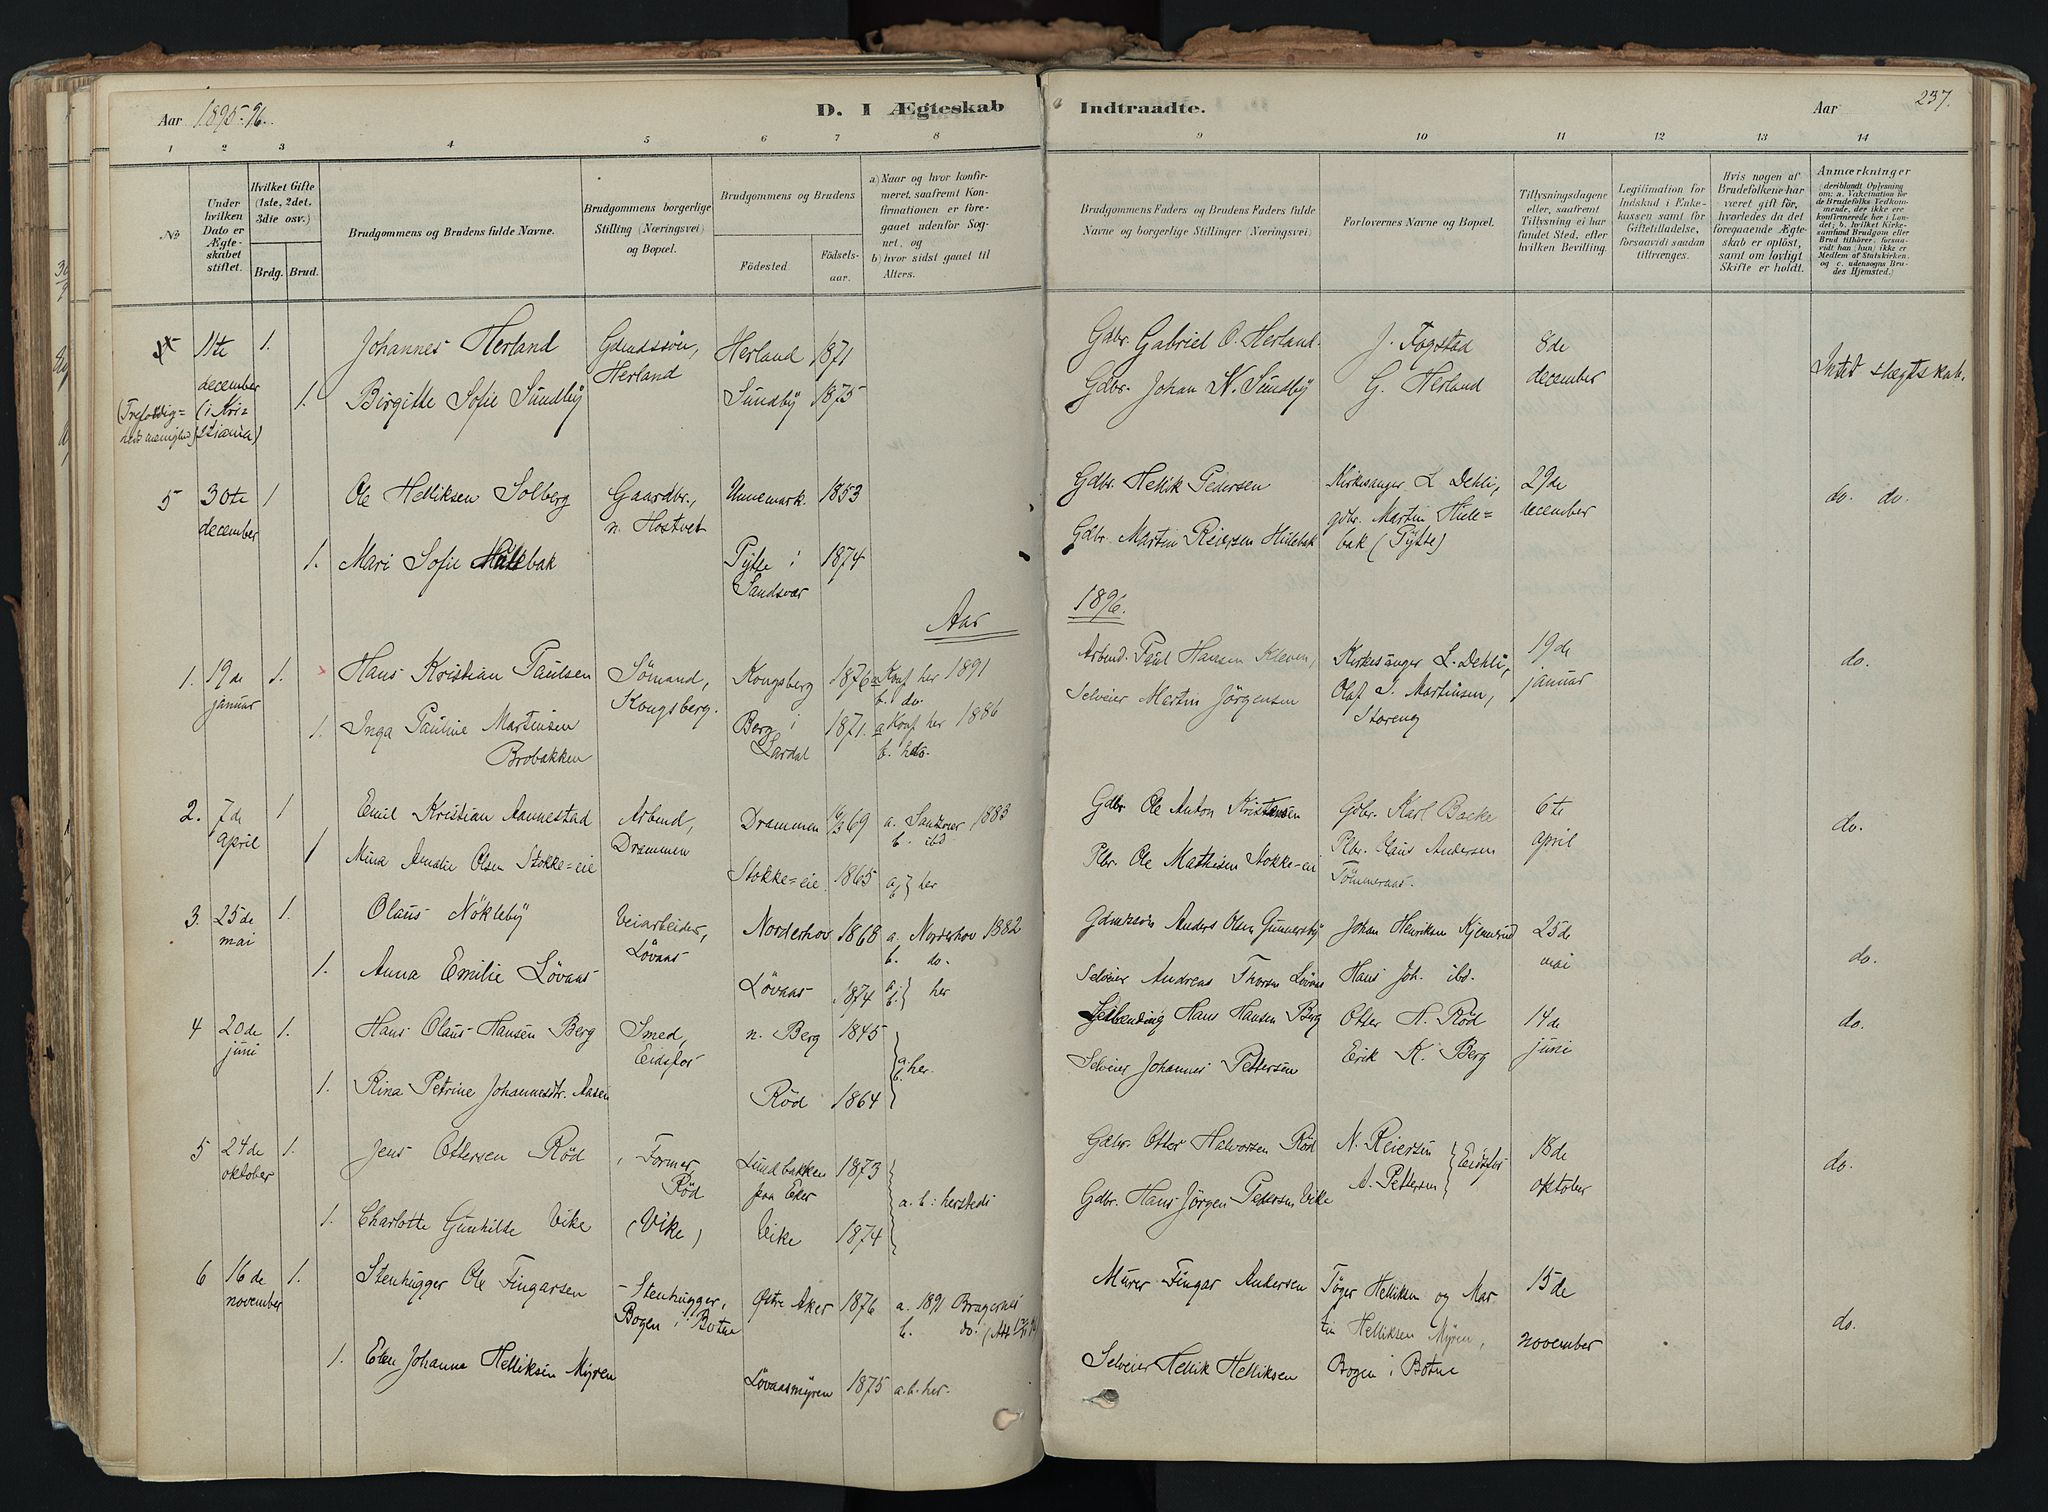 Aar 1895-96.
D. I Ægteskab
Indtraadte.
Aar
237.
1 2 3 4 5 6 7 8 9 10 11 12 13 14
No
Under hvilken Dato er Ægteskabet stiftet.
Hvilket Gifte (1ste, 2det, 3die osv.)
Brdg. Brud.
Brudgommens og Brudens fulde Navne.
Brudgommens borgerlige Stilling (Næringsvei) og Bopæl.
Brudgommens og Brudens
Födested.
Födselsaar.
a) Naar og hvor konfirmeret, saafremt Konfirmationen er foregaaet udenfor Sognet, og
b) hvor sidst gaaet til Alters.
Brudgommens Faders og Brudens Faders fulde Navne og borgerlige Stillinger (Næringsvei)
Forlovernes Navne og Bopæl.
Tillysningsdagene eller, saafremt Tillysning ei har fundet Sted, efter hvilken Bevilling.
Legitimation for Indskud i Enkekassen samt for Giftetilladelse, forsaavidt saadan tiltrænges.
Hvis nogen af Brudefolkene har været gift för, hvorledes da det foregaaende Ægteskab er oplöst, samt om lovligt Skifte er holdt.
Anmærkninger
(deriblandt Oplysning om: a. Vakcination for de Brudefolks Vedkommende, der ikke ere konfirmerede her i Landet; b. hvilket Kirkesamfund Brudgom eller Brud tilhörer, forsaavidt han (hun) ikke er Medlem af Statskirken, og c. udensogns Brudes Hjemsted.)
11te december (i Kristiania) 1. Johannes Herland Gdmdssön, Herland Herland 1871 Gdbr. Gabriel O. Herland. J. Fogstad 8de december Intet slegtskab.
1. Birgitte Sofie Sundby Sundby 1875 Gdbr. Johan N. Sundby G. Herland
5 30te december 1 Ole Helliksen Solberg Gaardbr., n. Hostvet Unnemark. 1853 Gdbr. Hellik Pedersen Kirkesanger L Dehli, 29de december do. do.
1. Mari Sofie Hullebak Tytte i Sandsvær 1874 Gdbr. Martin Reiersen Hullebak gdbr. Martin Hullebak (Tytte)
Aar 1896.
1. 19de januar 1. Hans Kristian Paulsen Sömand, Kongsberg. Kongsberg 1876 a Konf her 1891 b. do. Arbmd. Paul Hansen Kleven, Kirkesanger L. Dehli, 19de januar do.
1. Inga Pauline Martinsen Brobakken Berg i Lardal 1871. a Konf her 1886 b. Selveier Martin Jörgensen Olaf J. Martinsen, Storeng
2. 7de april 1 Emil Kristian Aannestad Arbmd, Drammen Drammen 69 a. Sandsvær 1883 b. ibd Gdbr Ole Anton Kristensen Gdbr. Karl Backe 6te april do.
1 Mina Amalie Olsen Stokke=eie Stokke=eie. 1865 a b} her Plbr. Ole Mathisen Stokke-eie Plbr. Olaus Andersen Tömmeraas.
3. 25de mai 1. Olaus Nökleby Veiarbeider, Lövaas Norderhov 1868 a. Norderhov 1882 b. do. Anders Olsen Gunnersby Johan Henriksen Kjemerud 25de mai do.
1. Anna Emilie Lövaas Lövaas 1874 a. b.} her Selveier Andreas Thorsen Lövaas Hans Joh. ibd.
4 20de juni 1. Hans Olaus Hansen Berg Smed, Eidsfos n. Berg 1845 a. b. her. Hans Hansen Berg Otter H. Röd 14de juni do.
1. Rina Petrine Johannesdtr. Aasen Röd 1864 Selveier Johannes Pettersen Erik K. Berg
5 24de oktober 1. Jens Ottersen Röd Former, Röd Lundbakken paa Eker 1873 a. b: hersteds Gdbr. Otter Halvorsen Röd N. Reiersen } Eidsfos 18de oktober do.
1. Charlotte Gunhilde Vike (Vike) Vike 1874 Gdbr. Hans Jörgen Pedersen Vike A. Pettersen
6 16de november 1. Stenhugger Ole Fingarsen Stenhugger, Bogen i Botne Östre Aker 1876 a. 1891 Bragernes b. do. Murer Fingar Andersen Töger Helliksen og Martin Helliksen Myren, Bogen i Botne 15de november do.
1. Elen Johanna Helliksen Myren Lövaasmyren 1875 a. b. her. Selveier Hellik Helliksen